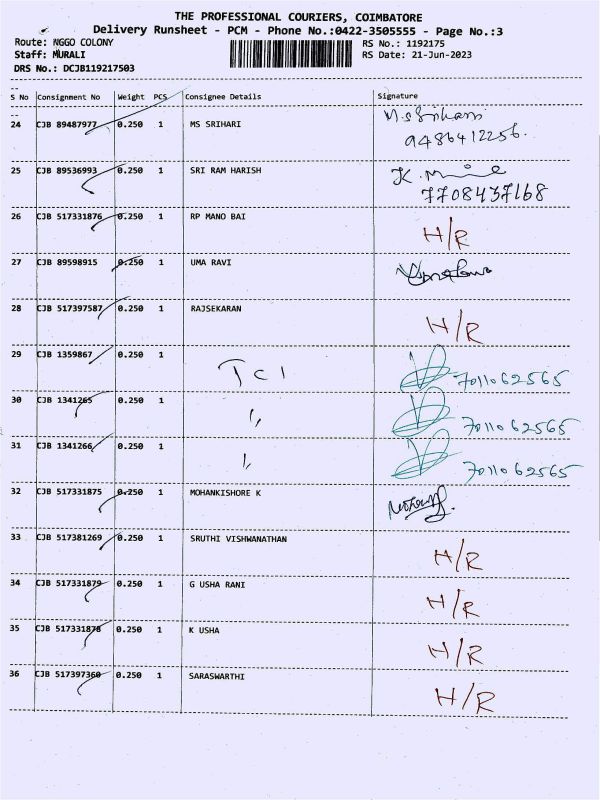 THE PROFESSIONAL COURIERS, COIMBATORE
Delivery Runsheet - PCM - Phone No.:0422-3505555 - Page No.:3
Route: NGGO COLONY RS No.: 1192175
Staff: MURALI RS Date: 21-Jun-2023
DRS No.: DCJB119217503
S No Consignment No Weight PCS Consignee Details Signature
24 CJB 89487977 0.250 1 MS SRIHARI M.s Srihari
9486412256.
25 CJB 89536993 0.250 1 SRI RAM HARISH K.
7708437168
26 CJB 517331876 0.250 1 RP MANO BAI H/R
27 CJB 89598915 0.250 1 UMA RAVI
28 CJB 517397587 0.250 1 RAJSEKARAN H/R
29 CJB 1359867 0.250 1 TCI 7011062565
30 CJB 1341265 0.250 1 " 7011062565
31 CJB 1341266 0.250 1 " 7011062565
32 CJB 517331875 0.250 1 MOHANKISHORE K
33 CJB 517381269 0.250 1 SRUTHI VISHWANATHAN H/R
34 CJB 517331879 0.250 1 G USHA RANI H/R
35 CJB 517331878 0.250 1 K USHA H/R
36 CJB 517397360 0.250 1 SARASWARTHI H/R